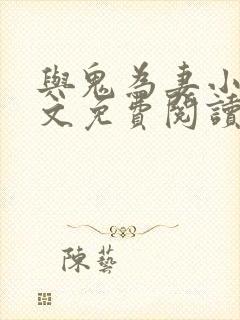 與鬼為妻小
文免費閱讀
陳藝